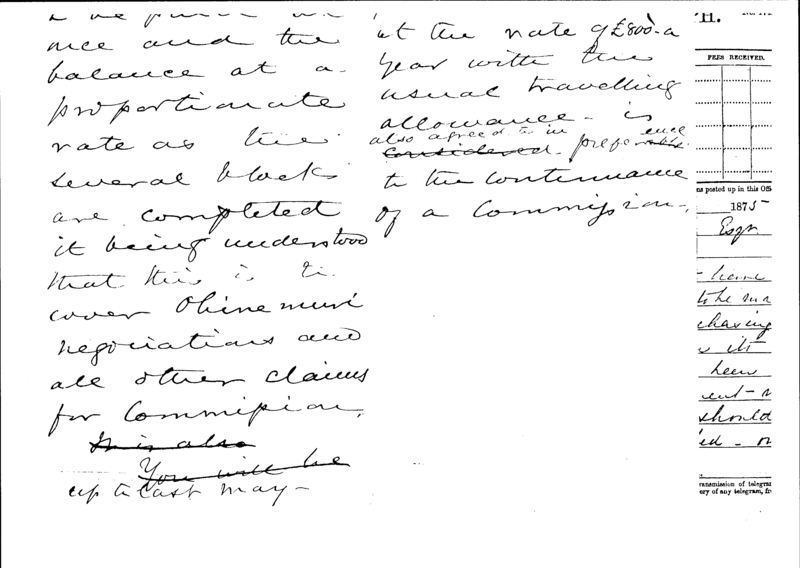 nce and the
balance at a
proportionate
rate as the
several blocks
are completed
it being understood
that this is to
cover Ohinemuri
negotiations and
all other claims
for Commission.
It is also
You will be
up to last May -
at the rate of £800 - a
year with the
usual travelling
allowance - is
also agreed to in
considered preference
to the continuance
of a Commission.
H.
FEES RECEIVED.
ns posted up in this Offi
1875
Esqr.
have
to the ma
chasing
its
been
ent -
should
ed - or
ransmission of telegra
ery of any telegram, fr